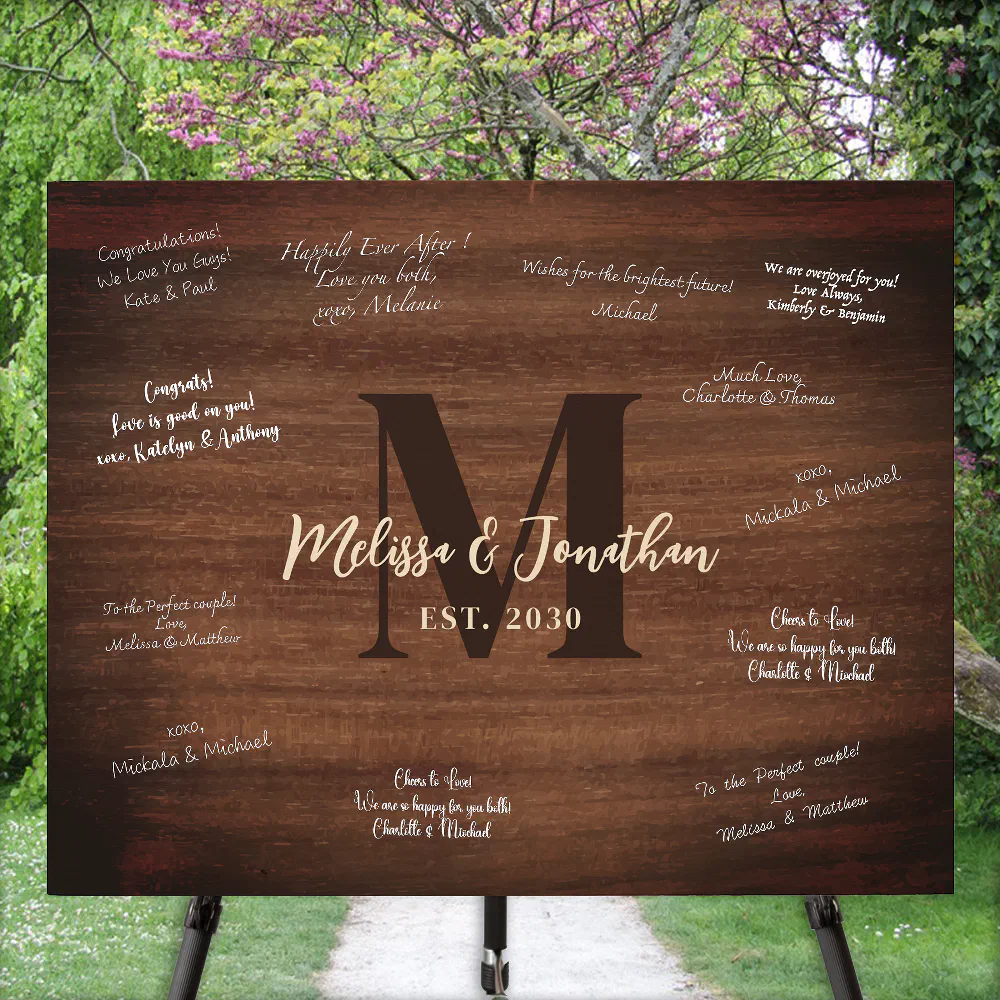 Congratulations!
We Love You Guys!
Kate & Paul
Happily Ever After !
Love you both,
xoxo, Melanie
Wishes for the brightest future!
Michael
We are overjoyed for you!
Love Always,
Kimberly & Benjamin
Congrats!
Love is good on you!
xoxo, Katelyn & Anthony
Much Love,
Charlotte & Thomas
xoxo,
Mickala & Michael
M
Melissa & Jonathan
EST. 2030
To the Perfect couple!
Love,
Melissa & Matthew
Cheers to Love!
We are so happy for you both!
Charlotte & Miochad
xoxo,
Mickala & Michael
Cheers to Love!
We are so happy for you both!
Charlotte & Miochad
To the Perfect couple!
Love,
Melissa & Matthew